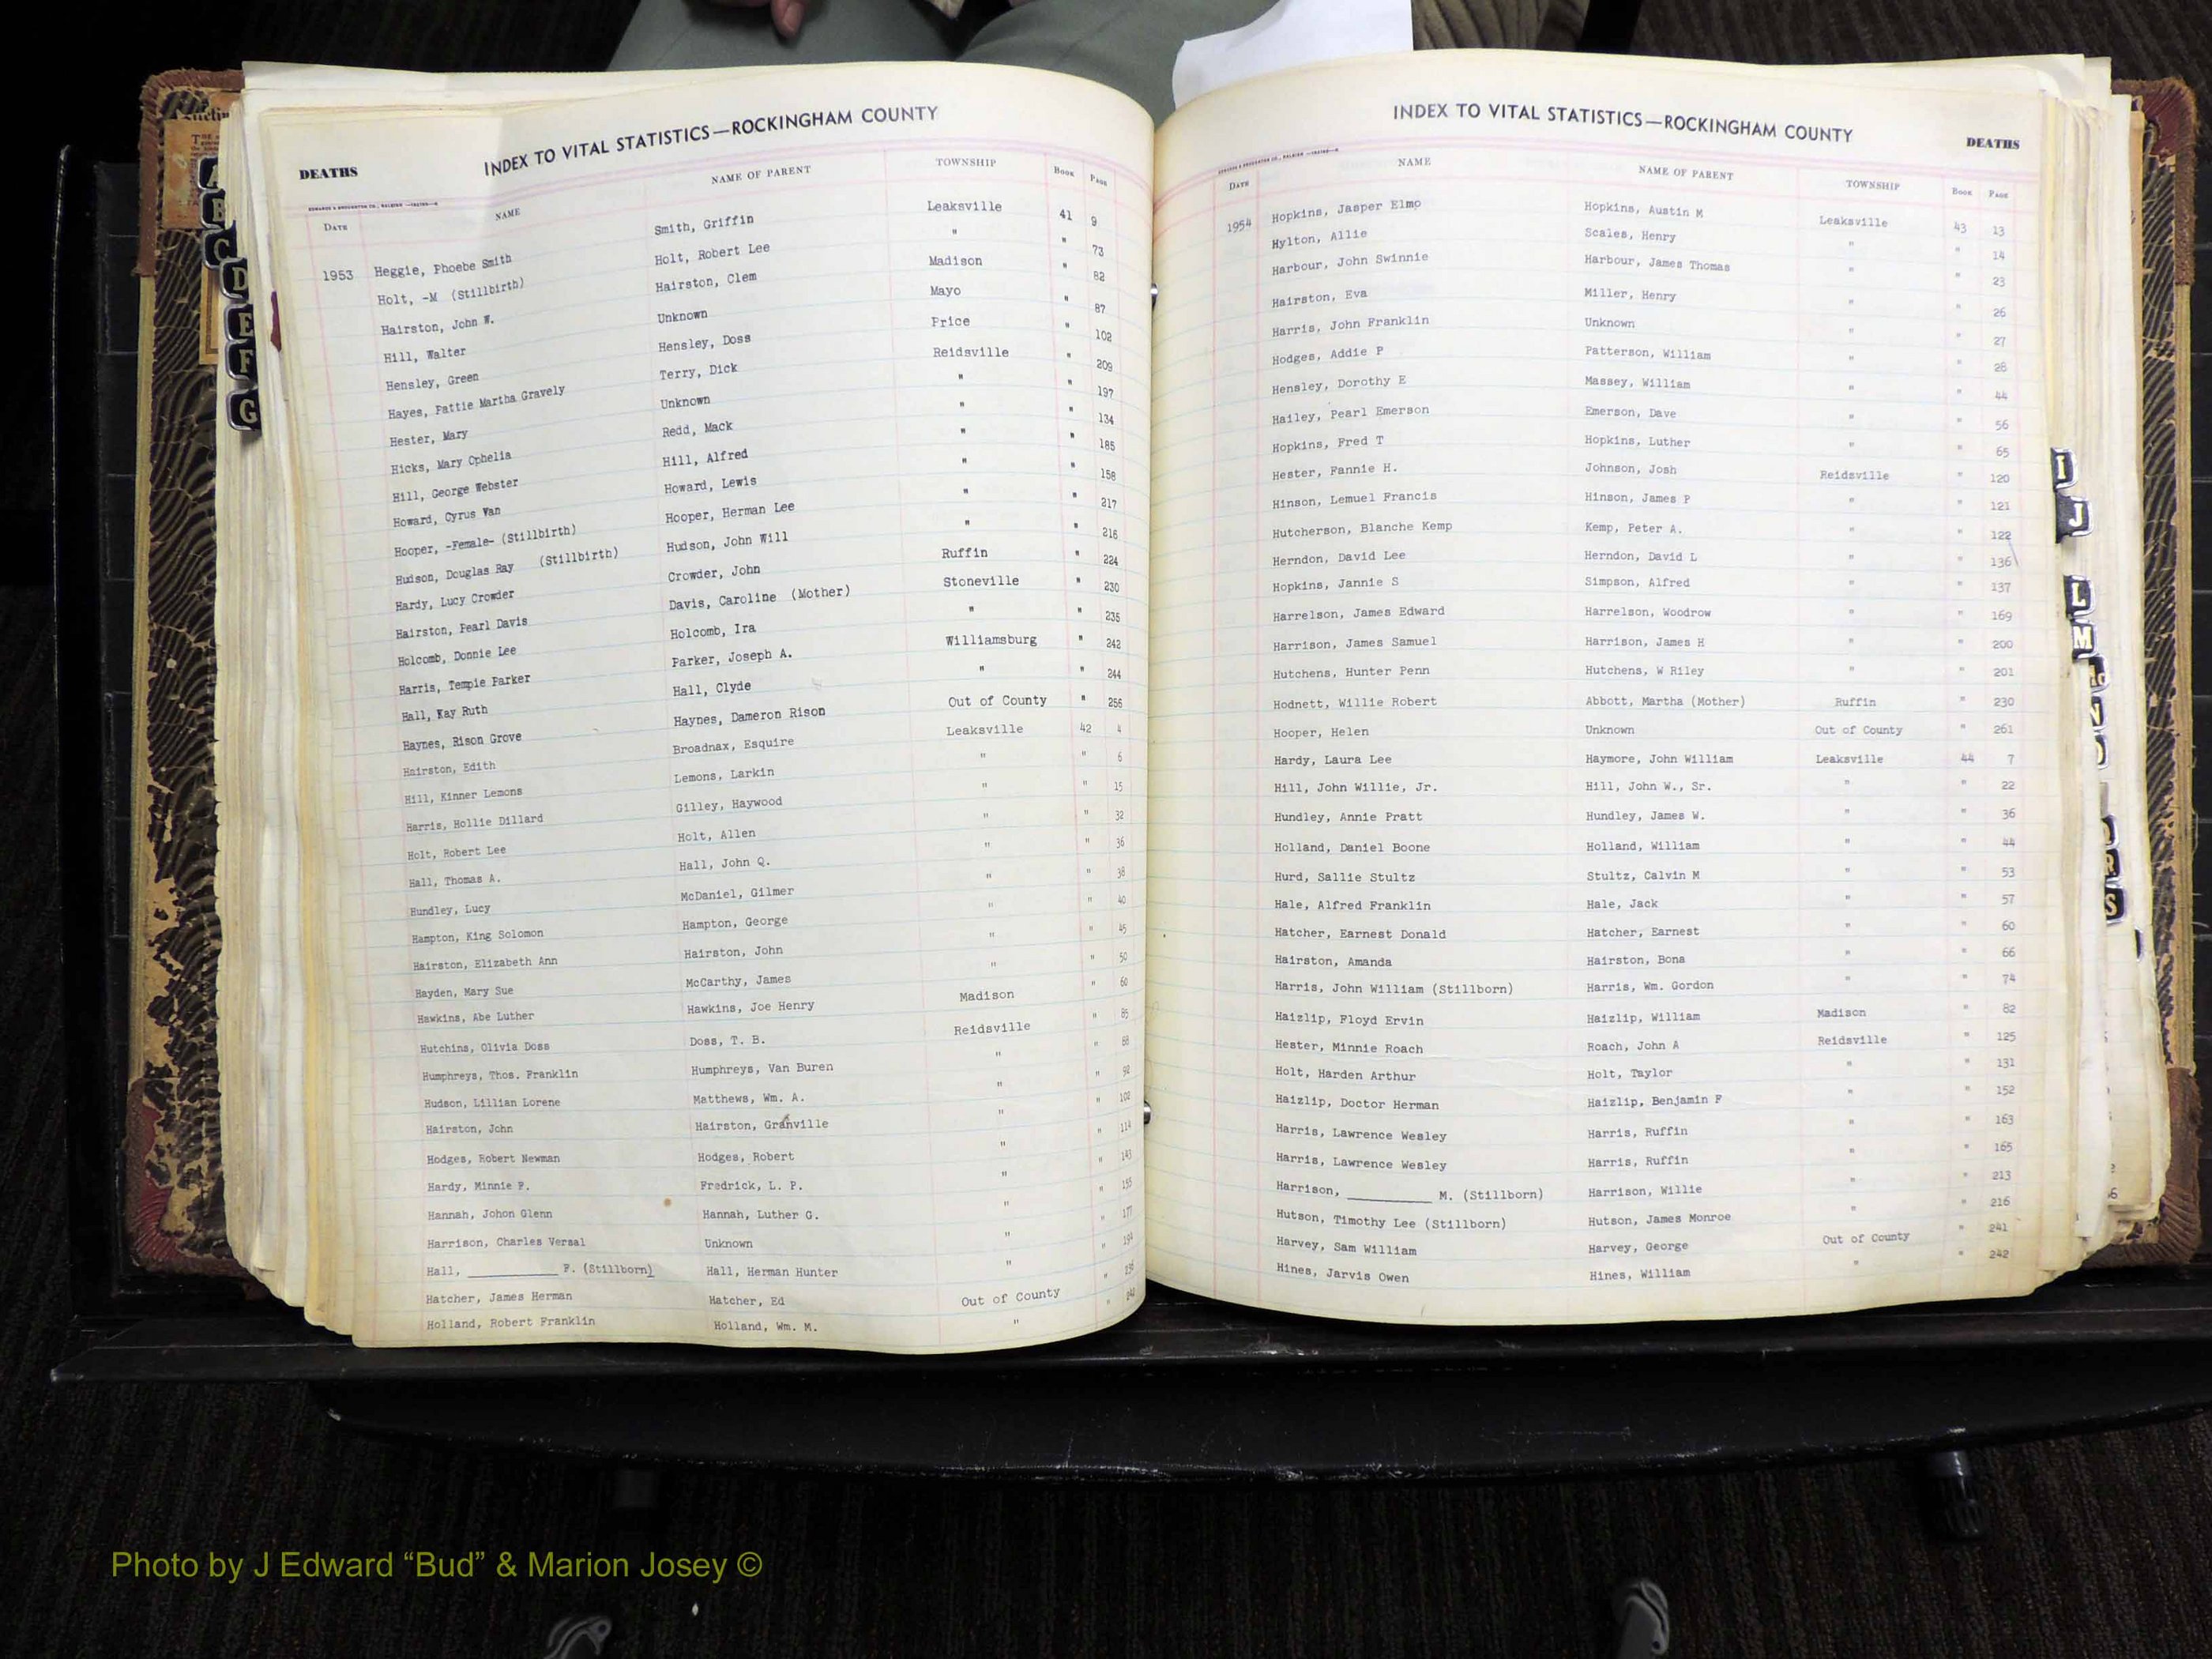 DEATHS INDEX TO VITAL STATISTICS—ROCKINGHAM COUNTY
DATE NAME NAME OF PARENT TOWNSHIP BOOK PAGE
1953 Heggie, Phoebe Smith Smith, Griffin Leaksville 41 9
Holt, -M (Stillbirth) Holt, Robert Lee " " 73
Hairston, John W. Hairston, Clem Madison " 82
Hill, Walter Unknown Mayo " 87
Hensley, Green Hensley, Doss Price " 102
Hayes, Pattie Martha Gravely Terry, Dick Reidsville " 209
Hester, Mary Unknown " " 197
Hicks, Mary Ophelia Redd, Mack " " 134
Hill, George Webster Hill, Alfred " " 185
Howard, Cyrus Van Howard, Lewis " " 158
Hooper, -Female- (Stillbirth) Hooper, Herman Lee " " 217
Hudson, Douglas Ray (Stillbirth) Hudson, John Will " " 216
Hardy, Lucy Crowder Crowder, John Ruffin " 224
Hairston, Pearl Davis Davis, Caroline (Mother) Stoneville " 230
Holcomb, Donnie Lee Holcomb, Ira " " 235
Harris, Tempie Parker Parker, Joseph A. Williamsburg " 242
Hall, Kay Ruth Hall, Clyde " " 244
Haynes, Rison Grove Haynes, Dameron Rison Out of County " 256
Hairston, Edith Broadnax, Esquire Leaksville 42 4
Hill, Kinner Lemons Lemons, Larkin " " 6
Harris, Hollie Dillard Gilley, Haywood " " 15
Holt, Robert Lee Holt, Allen " " 32
Hall, Thomas A. Hall, John Q. " " 36
Hundley, Lucy McDaniel, Gilmer " " 38
Hampton, King Solomon Hampton, George " " 40
Hairston, Elizabeth Ann Hairston, John " " 45
Hayden, Mary Sue McCarthy, James " " 50
Hawkins, Abe Luther Hawkins, Joe Henry Madison " 60
Hutchins, Olivia Doss Doss, T. B. Reidsville " 85
Humphreys, Thos. Franklin Humphreys, Van Buren " " 88
Hudson, Lillian Lorene Matthews, Wm. A. " " 92
Hairston, John Hairston, Granville " " 102
Hodges, Robert Newman Hodges, Robert " " 114
Hardy, Minnie F. Fredrick, L. P. " " 143
Hannah, Johon Glenn Hannah, Luther G. " " 155
Harrison, Charles Versal Unknown " " 177
Hall, __________ F. (Stillborn) Hall, Herman Hunter " " 194
Hatcher, James Herman Hatcher, Ed Out of County "
Holland, Robert Franklin Holland, Wm. M. " "
INDEX TO VITAL STATISTICS—ROCKINGHAM COUNTY DEATHS
DATE NAME NAME OF PARENT TOWNSHIP BOOK PAGE
1954 Hopkins, Jasper Elmo Hopkins, Austin M Leaksville 43 13
Hylton, Allie Scales, Henry " " 14
Harbour, John Swinnie Harbour, James Thomas " " 23
Hairston, Eva Miller, Henry " " 26
Harris, John Franklin Unknown " " 27
Hodges, Addie P Patterson, William " " 28
Hensley, Dorothy E Massey, William " " 44
Hailey, Pearl Emerson Emerson, Dave " " 56
Hopkins, Fred T Hopkins, Luther " " 65
Hester, Fannie H. Johnson, Josh Reidsville " 120
Hinson, Lemuel Francis Hinson, James P " " 121
Hutcherson, Blanche Kemp Kemp, Peter A. " " 122
Herndon, David Lee Herndon, David L " " 136
Hopkins, Jannie S Simpson, Alfred " " 137
Harrelson, James Edward Harrelson, Woodrow " " 169
Harrison, James Samuel Harrison, James H " " 200
Hutchens, Hunter Penn Hutchens, W Riley " " 201
Hodnett, Willie Robert Abbott, Martha (Mother) Ruffin " 230
Hooper, Helen Unknown Out of County " 261
Hardy, Laura Lee Haymore, John William Leaksville 44 7
Hill, John Willie, Jr. Hill, John W., Sr. " " 22
Hundley, Annie Pratt Hundley, James W. " " 36
Holland, Daniel Boone Holland, William " " 44
Hurd, Sallie Stultz Stultz, Calvin M " " 53
Hale, Alfred Franklin Hale, Jack " " 57
Hatcher, Earnest Donald Hatcher, Earnest " " 60
Hairston, Amanda Hairston, Bona " " 66
Harris, John William (Stillborn) Harris, Wm. Gordon " " 74
Haizlip, Floyd Ervin Haizlip, William Madison " 82
Hester, Minnie Roach Roach, John A Reidsville " 125
Holt, Harden Arthur Holt, Taylor " " 131
Haizlip, Doctor Herman Haizlip, Benjamin F " " 152
Harris, Lawrence Wesley Harris, Ruffin " " 163
Harris, Lawrence Wesley Harris, Ruffin " " 165
Harrison, __________ M. (Stillborn) Harrison, Willie " " 213
Hutson, Timothy Lee (Stillborn) Hutson, James Monroe " " 216
Harvey, Sam William Harvey, George Out of County " 241
Hines, Jarvis Owen Hines, William " " 242
A
B
C
D
E
F
G
I
J
L
M
N
R
S
Photo by J Edward “Bud” & Marion Josey ©